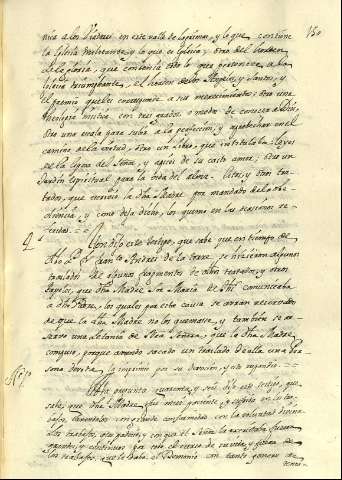 150
nica a los Viadores en este valle de lagrimas, y lo que contiene
la Iglesia militante, y lo que es Iglesia; otro del
de la gloria, que contenia todo lo que pertenece a la
Iglesia triumphante, el de los Angeles, y Santos, y
el premio que les corresponde a sus merecimientos; otro una
Theologia mistica con tres grados, o modos de conocer a Dios,
otro una escala para subir a la perfeccion, y aprovechar en el
camino de la virtud, otro un libro, que intitulaba Leyes
de la esposa del Señor, y apices de su casto amor; otro un
Jardin espiritual para la vida del alma. Otro, y otros tra-
tados, que escrivió la dha Madre por mandado de la obe-
diencia, y como deja dicho, los quemo en las ocasiones re-
feridas.
Y dijo este testigo, que sabe que en tiempo de
dho Pe fr. Andres de la torre, se hicieron algunos
traslados de algunos fragmentos de otros tratados, y otros
papeles, que dha Madre Sor Maria de Jhs comunicaba
a dho Padre, los quales por esta causa se
de que la dha Madre no los quemase, y también se re-
servo una Letania de Nra Señora, que la dha Madre
compuso, porque aviendo sacado un traslado de ella una per-
sona devota, la imprimio por su devocion, y no
Al quarenta, y seis dijo este testigo, que
sabe, que dha Madre fue mui paciente, y sufrida en los tra-
bajos, llevandolos con grande conformidad con la voluntad divina
los trabajos, con que el Señor la exercitaba fueron
quanto, y continuos por todo el curso de su vida, y fuera de
los trabajos, que le daba el Demonio con tanto genero de
tenta-